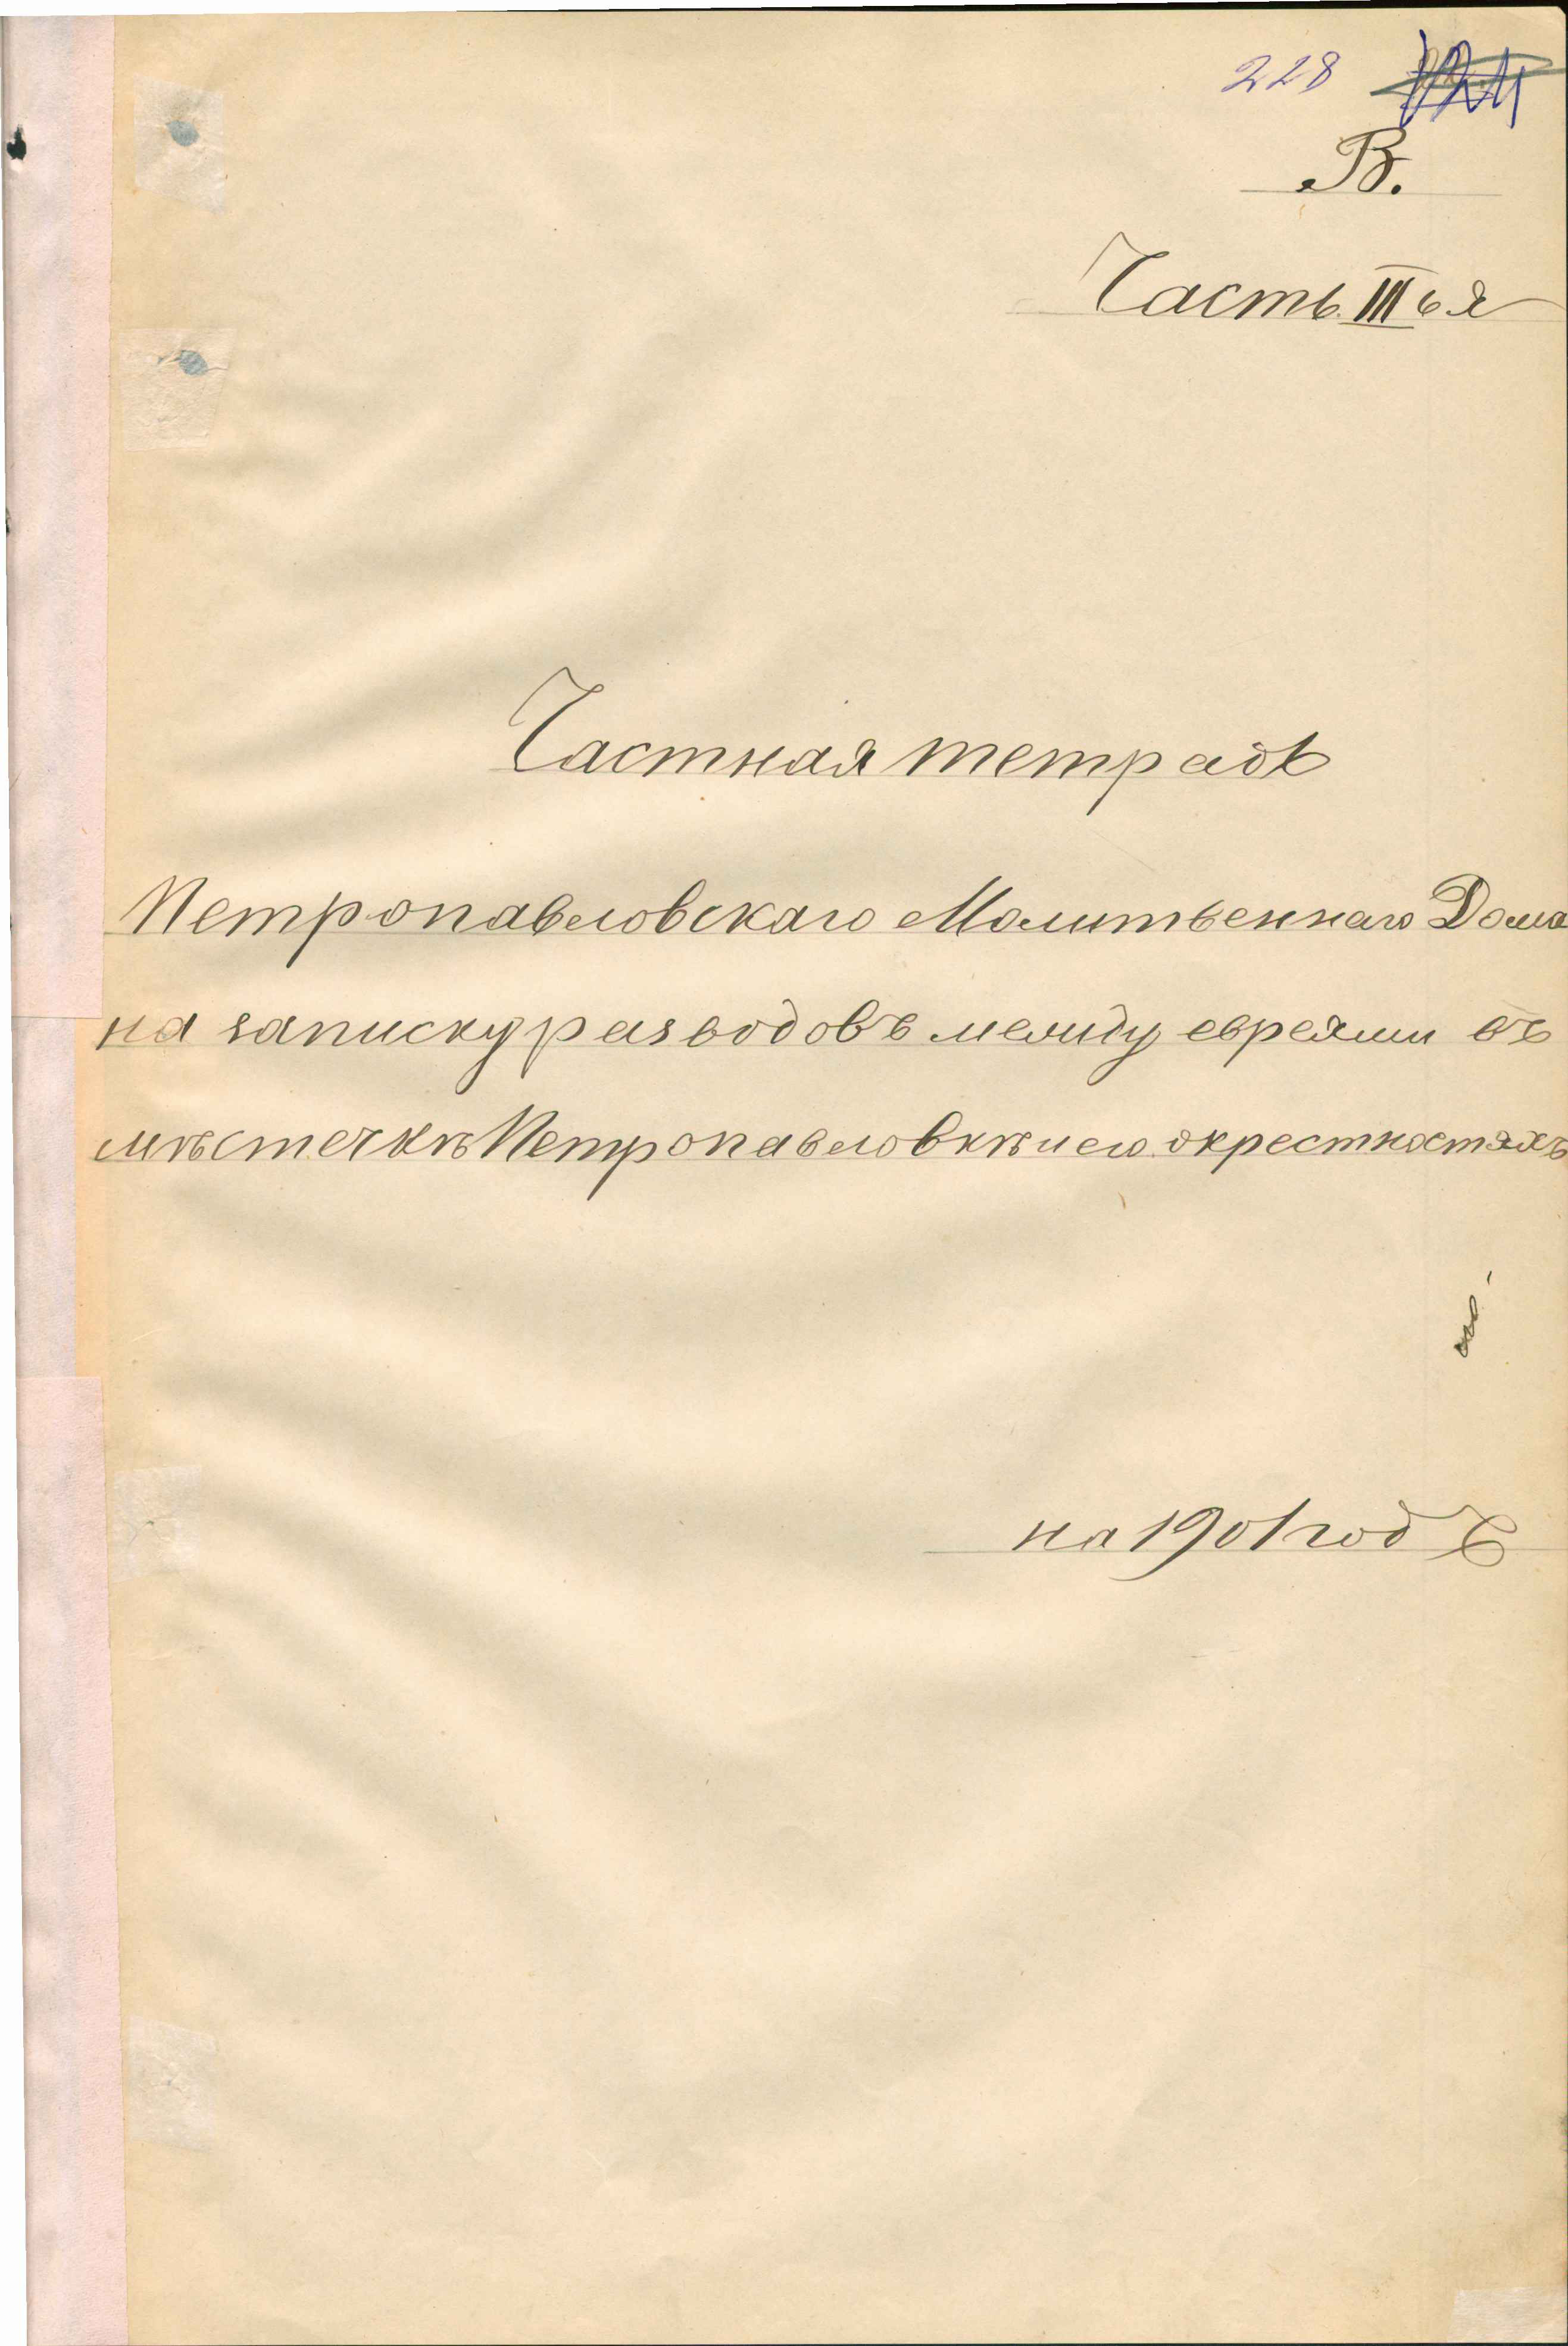 228
В.
Часть III ья
Частная тетрадь
Петропавловскаго Молитвеннаго Дома
на записку разводовъ между евреями въ
мѣстечкѣ Петропавловкѣ и его окрестностяхъ
на 1901 годъ